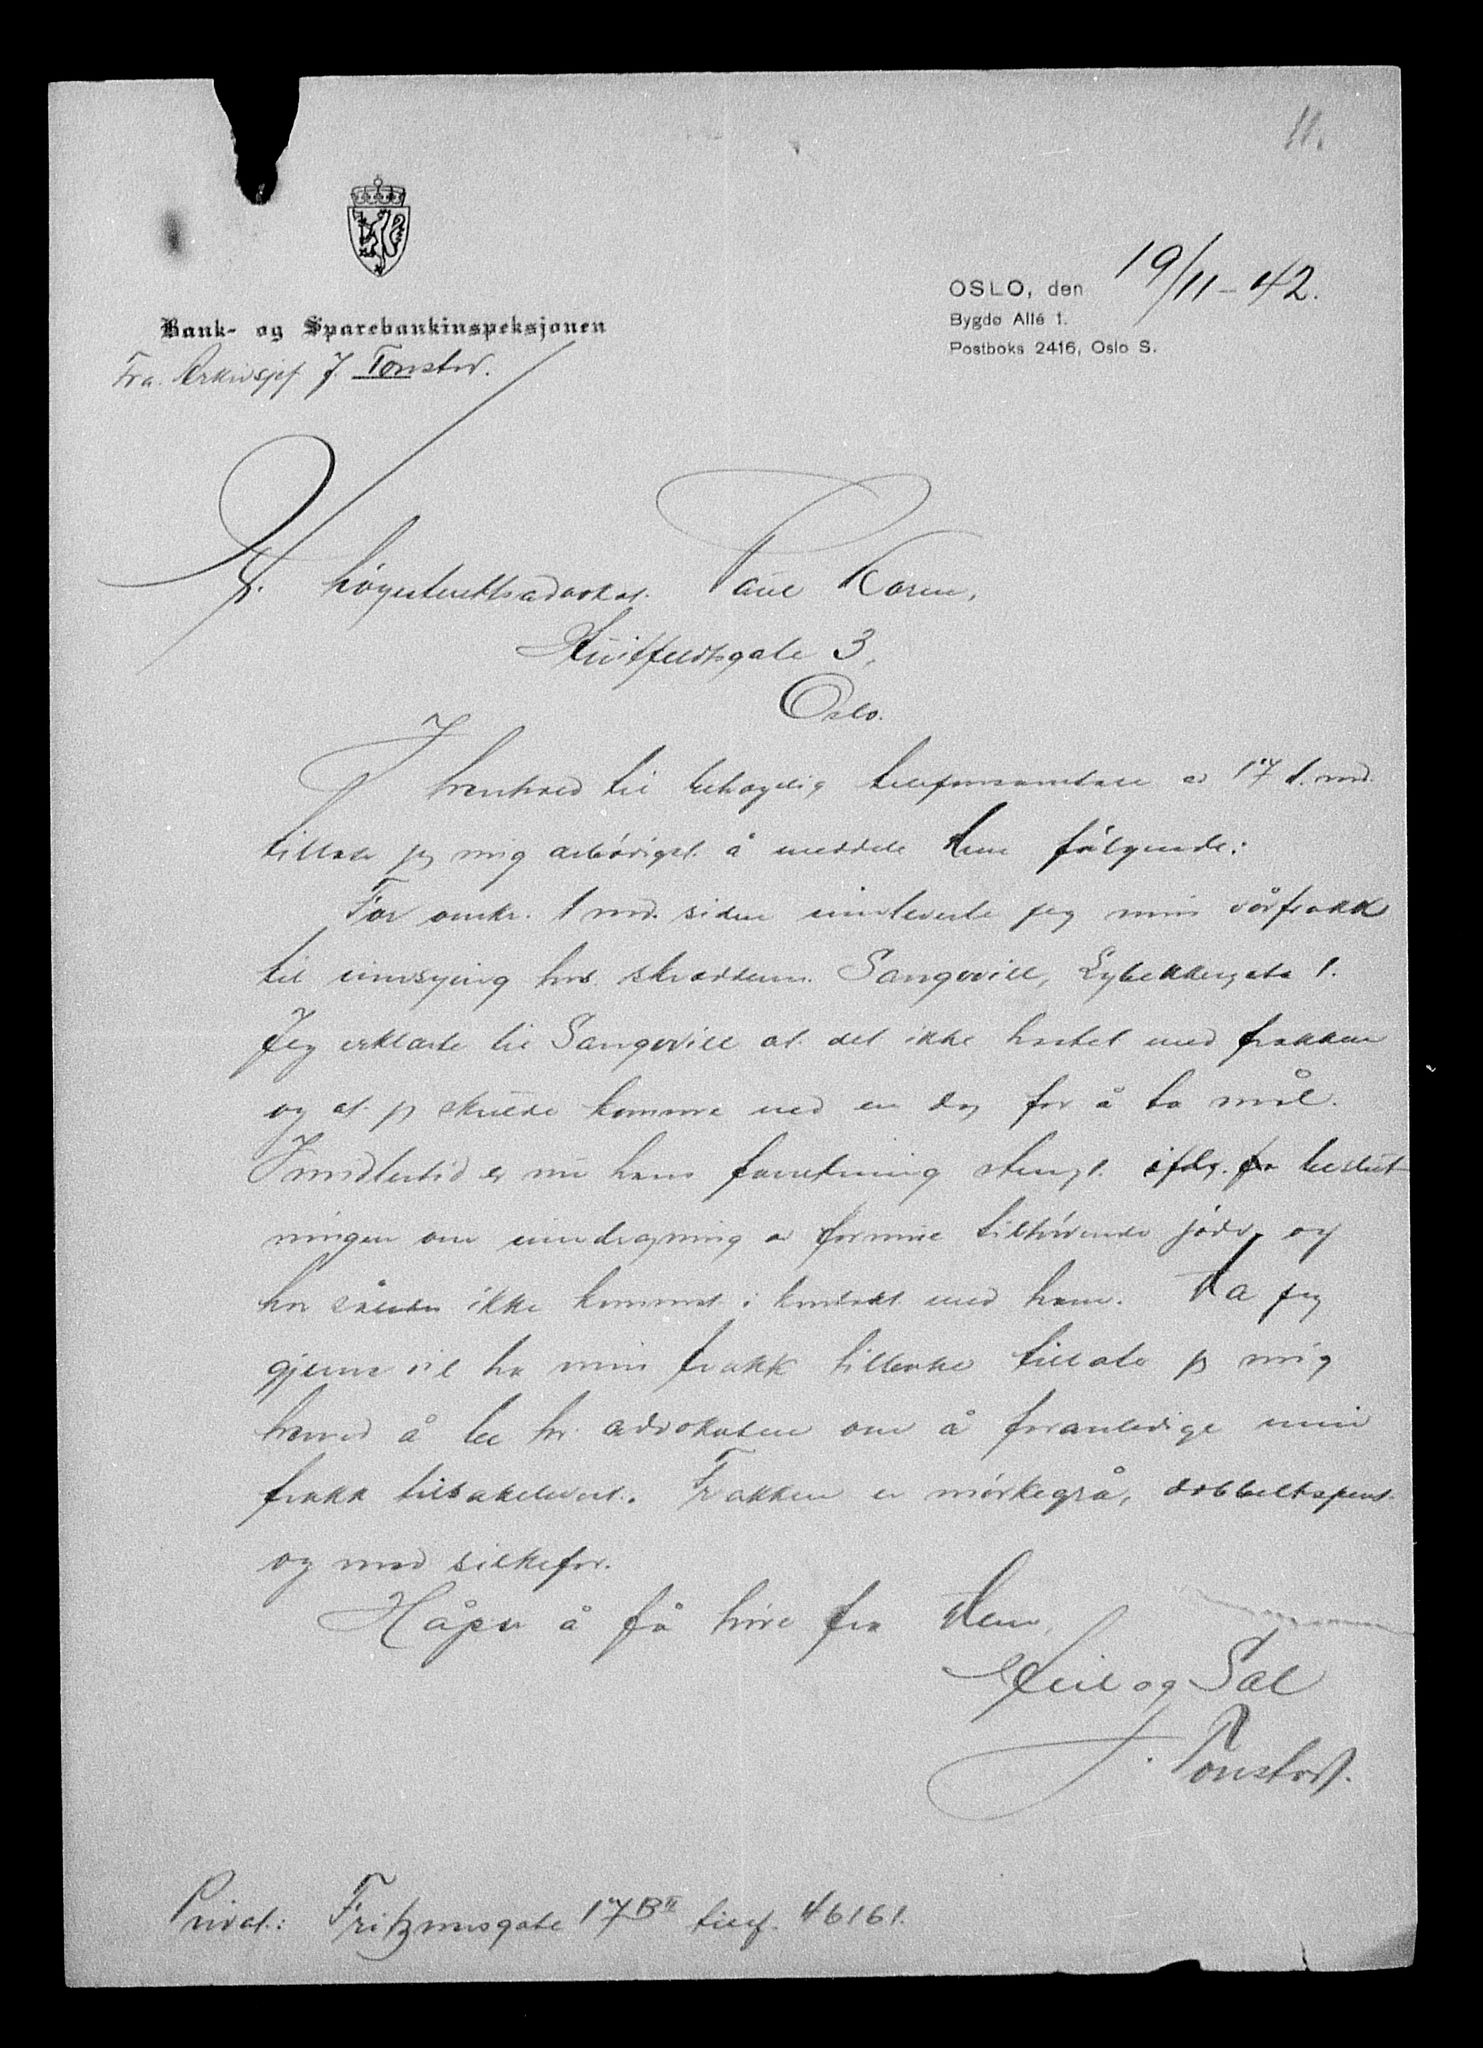 11.
OSLO, den 19/11-42.
Bygdø Allé 1.
Postboks 2416, Oslo S.
Bank- og Sparebankinspeksjonen
Fra Arkivsjef J. Tonstad.
Hr. høyesterettsadvokat Paul Koren,
Huitfeldtsgate 3,
Oslo.
I henhold til behagelig telefonsamtale av 17 d. md.
tillater jeg mig ærbødigst å meddele Dem følgende:
For omkr. 1 md. siden innleverte jeg min vårfrakk
til innsying hos skrædderm. Sangovill, Lybekkergata 1.
Jeg erklærte til Sangovill at det ikke hastet med frakken
og at jeg skulde komme ned en dag for å ta mål.
Imidlertid er nu hans forretning stengt iflg. beslut-
ningen om inndragning av formue tilhørende jøder og
har således ikke kommet i kontakt med ham. Da jeg
gjerne vil ha min frakk tilbake tillater jeg mig
herved å be hr. advokaten om å foranledige min
frakk tilbakelevert. Frakken er mørkegrå, dobbeltspent
og med silkefor.
Håper å få høre fra Dem,
Heil og Sæl
J. Tonstad.
Privat: Fritznersgate 17 B II telef. 46161.